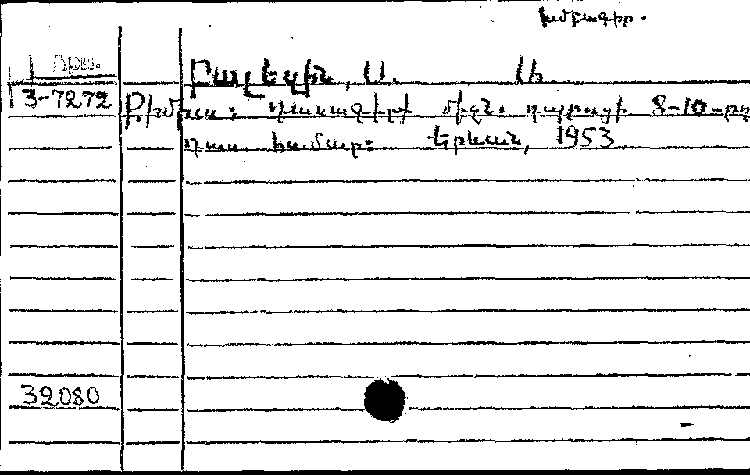 խմբագիր.
Դրս.
Բալեզին, Ս. Ա.
3-7272 Քիմիա: Դասագիրք միջն. դպրոցի 8-10-րդ
դաս համար: Երևան, 1953
39080